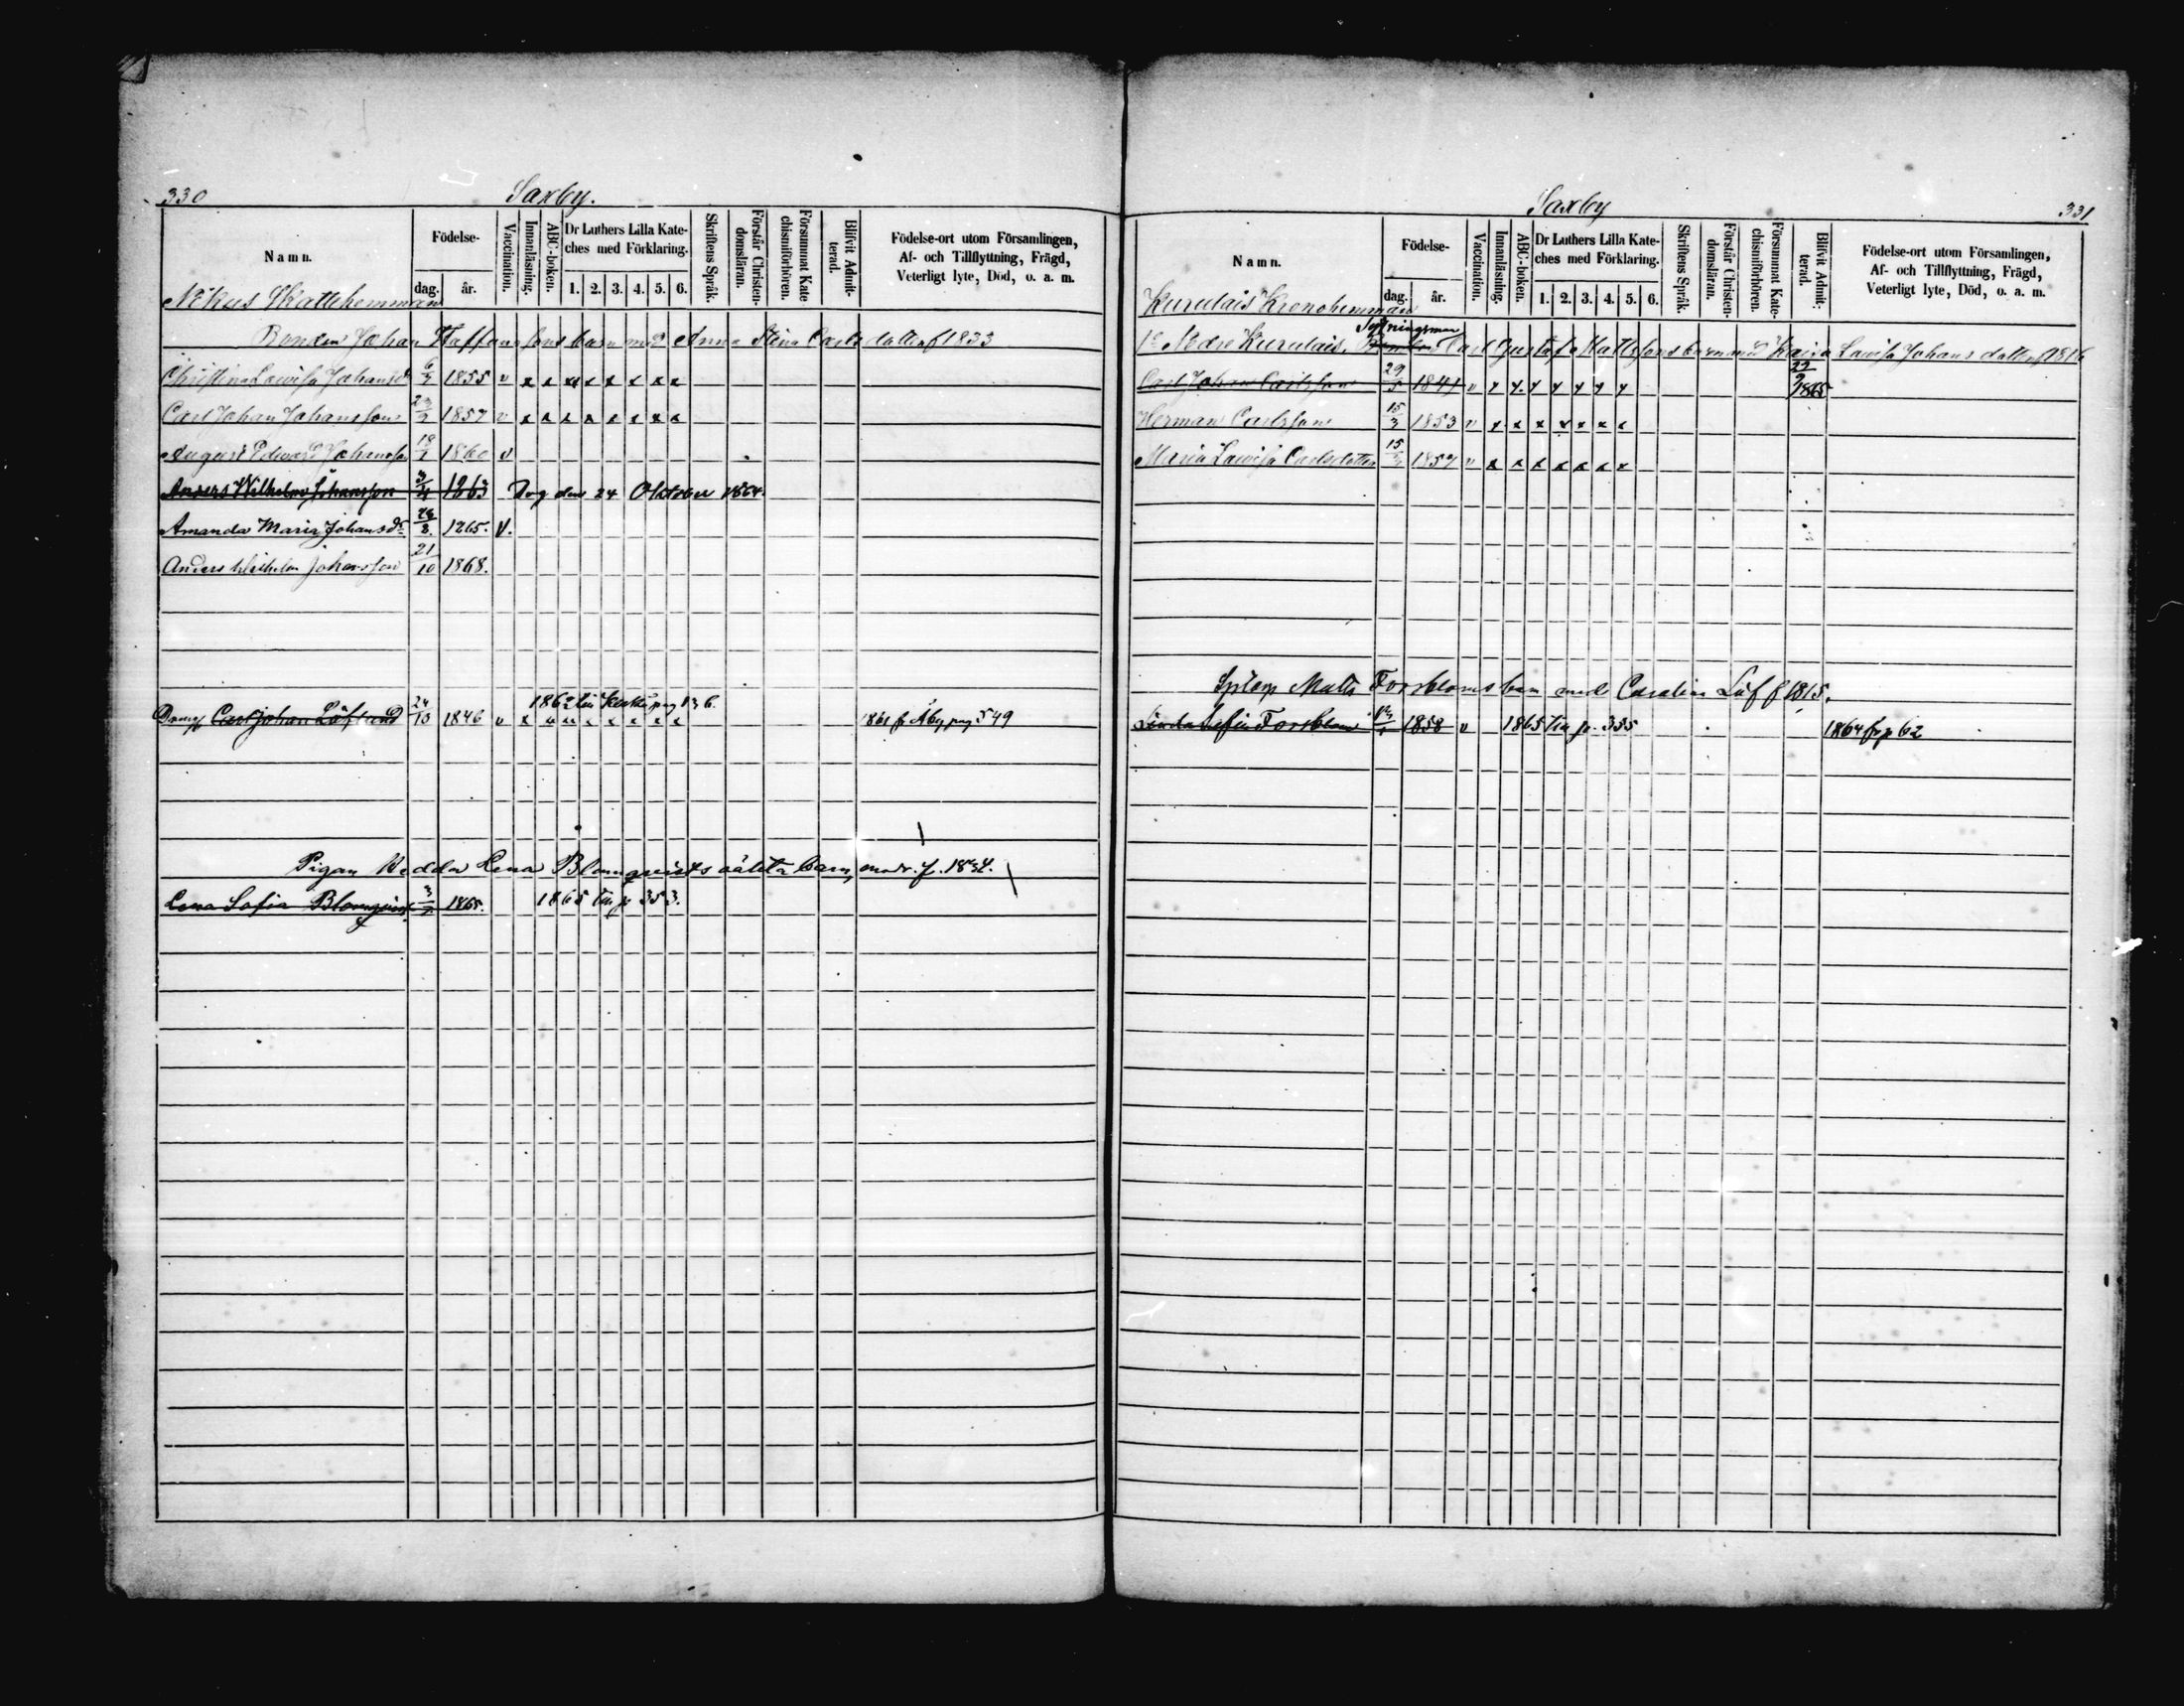 330
Saxby.
Namn.
Födelse-
dag.
år.
Vaccination.
Innanläsning.
ABC-boken.
Dr Luthers Lilla Kate-
ches med Förklaring.
1. 2. 3. 4. 5. 6.
Skriftens Språk.
Förstår Christen-
domsläran.
Försummat Kate
chismiförhören.
Blifvit Admit-
terad.
Födelse-ort utom Församlingen,
Af- och Tillflyttning, Frägd,
Veterligt lyte, Död, o. a. m.
Nikus Skattehemman
Bonden Johan Staffanssons barn med Anna Stina Carlsdotter f 1833
Christina Lovisa Johansdr 6/3 1855 v x x x x x x x x
Carl Johan Johansson 1857 v x x x x x x x x
August Edvard Johansson 1860 v
Anders Wilhelm Johansson 3/4 1863 Dog den 24 Oktober 1864.
Amanda Maria Johansdr 1865. V.
Anders Wilhelm Johansson 21/10 1868.
1862 till pag 136.
Dräng Carl Johan Löflund 24/10 1846 v x x x x x x x x 1861 fr Åby pag 549
Pigan Hedda Lena Blomqvists oäkta barn, modr. f. 1834.
Lena Sofia Blomqvist 1865. 1865 till p 353.
Saxby
331
Namn.
Födelse-
dag.
år.
Vaccination.
Innanläsning.
ABC-boken.
Dr Luthers Lilla Kate-
ches med Förklaring.
1. 2. 3. 4. 5. 6.
Skriftens Språk.
Förstår Christen-
domsläran.
Försummat Kate-
chismiförhören.
Blifvit Admit-
terad.
Födelse-ort utom Församlingen,
Af- och Tillflyttning, Frägd,
Veterligt lyte, Död, o. a. m.
Kurulais Kronohemman
Sytningsman
Nedre Kurulais. Bonden Carl Gustaf Mattssons barn med Kaisa Lovisa Johansdotter f 1816
Carl Johan Carlsson 29/5 1847 v x x x x x x x 1865
Herman Carlsson 15/3 1853 v x x x x x x x
Maria Lovisa Carlsdotter 1857 v x x x x x x x
Matts Forsbloms barn med Carolina Löf f 1815.
Sofia Forsblom 1858 v 1865 till p. 335 1864 fr p 62